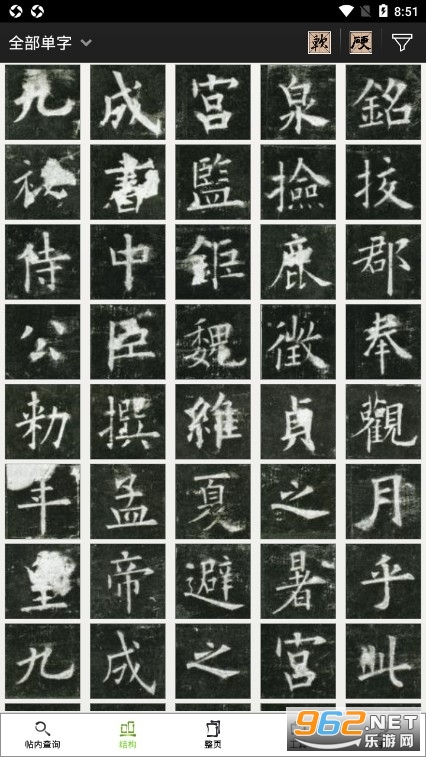 8:51
全部单字 軟 硬
九 成 宮 泉 銘
秘 書 監 撿 挍
侍 中 鉅 鹿 郡
公 臣 魏 徵 奉
勑 撰 維 貞 觀
年 孟 夏 之 月
皇 帝 避 暑 乎
九 成 之 宮 此
帖内查询 结构 整页
962.NET
乐游网